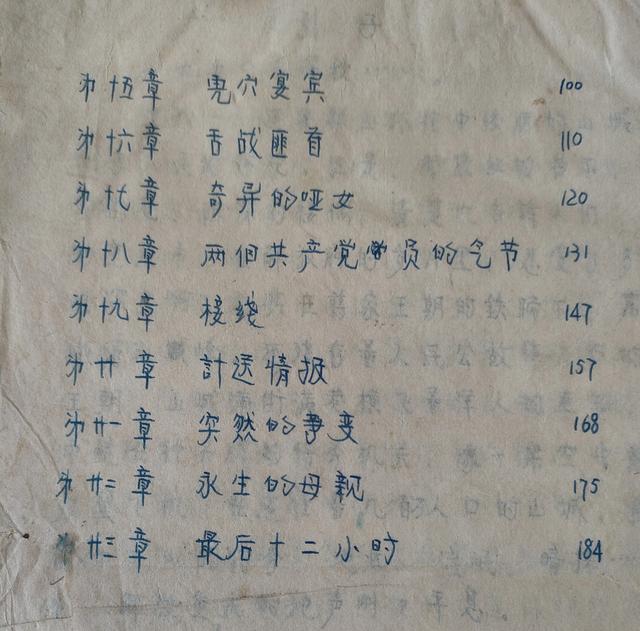 第十五章 鬼穴宴宾 100
第十六章 舌战匪首 110
第十七章 奇异的哑女 120
第十八章 两個共产党员的气节 131
第十九章 接线 147
第廿章 計送情报 157
第廿一章 突然的事变 168
第廿二章 永生的母親 175
第廿三章 最后十二小时 184